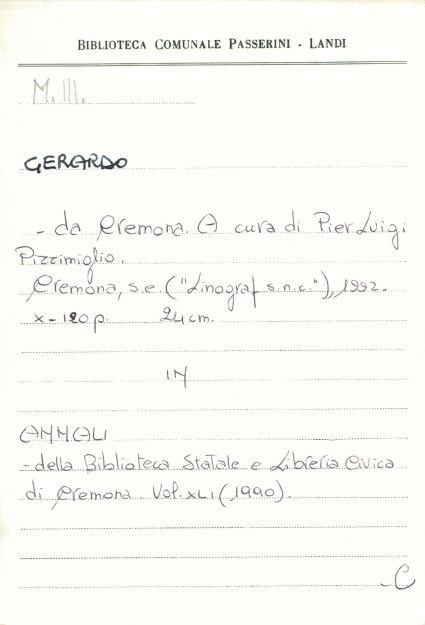 BIBLIOTECA COMUNALE PASSERINI - LANDI
M. III.
GERARDO
- da Cremona. A cura di Pier Luigi
Pizzimiglio.
Cremona, s.e. ("Linograf s.n.c."), 1992.
X-120 p. 24 cm.
IN
ANNALI
- della Biblioteca Statale e Libreria Civica
di Cremona. Vol. XLI (1990).
- C